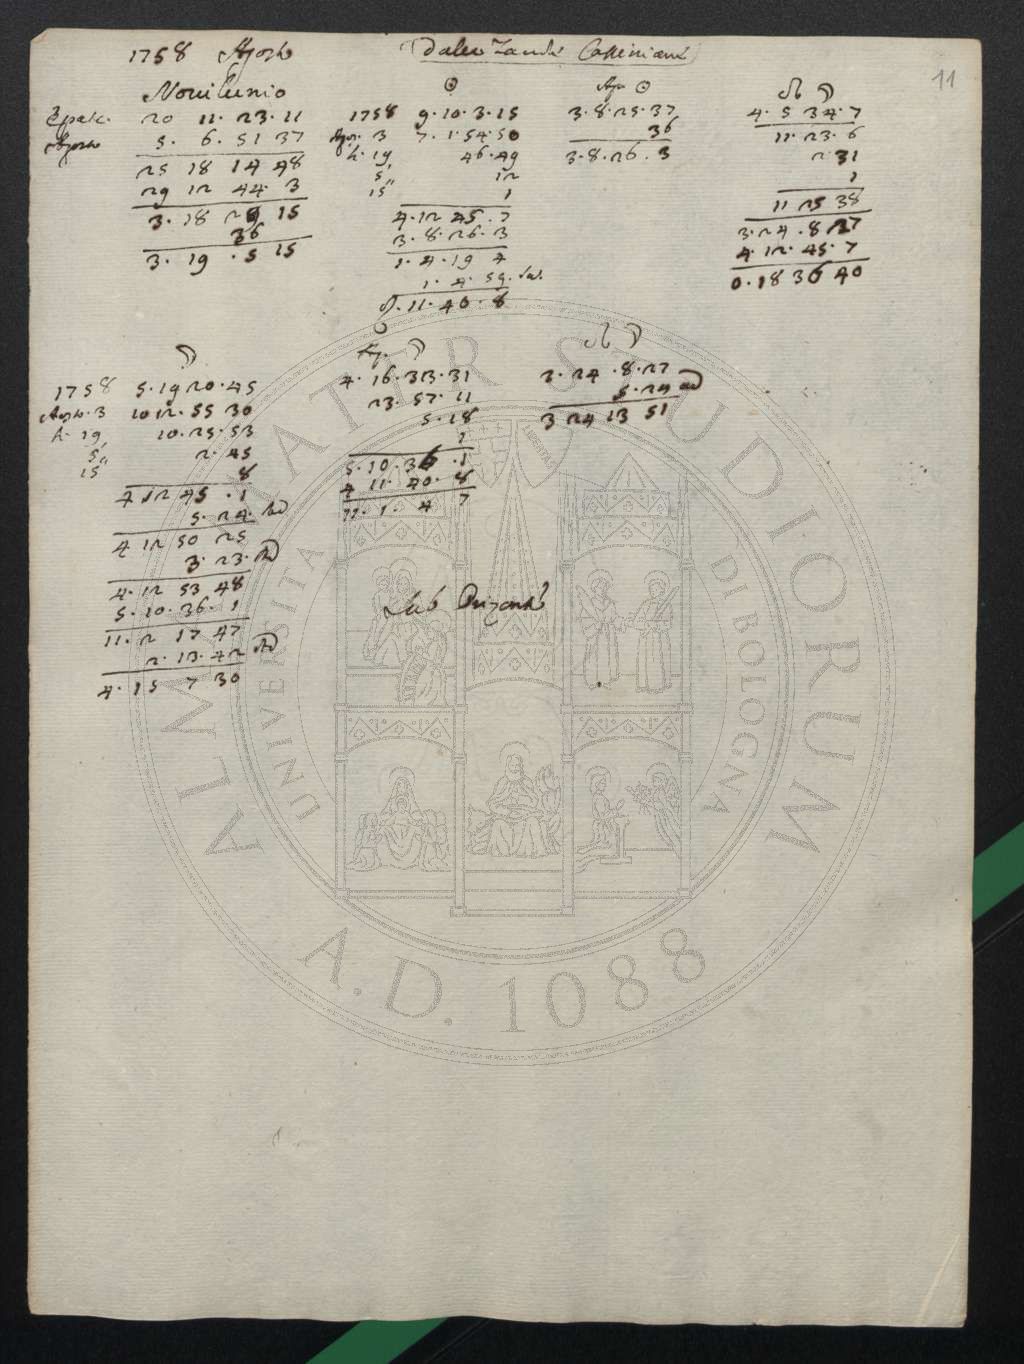 11
1758 Agosto
Dalle Tavole Cassiniane
Novilunio
Epatt. 20 11. 23. 11
Agosto 5. 6. 51 37
25 18 14 48
29 12 44. 3
3. 18 29 15
36
3. 19 . 5 15
☉
1758 9. 10. 3. 15
Agos. 3 7. 1. 54. 50
h. 19 46. 49
5' 12
15'' 1
4. 12 45 . 7
3. 8. 26. 3
1. 4. 19 4
1. 4. 59.
11. 40. 8
Ap. ☉
3. 8. 25. 37
36
3. 8. 26. 3
☊ ☽
4. 5 34. 7
11. 23. 6
2 31
1
11 25 38
3. 24 . 8 27
4. 12. 45. 7
0. 18 36 40
☽
1758 5. 19 20. 45
Agosto. 3 10 12. 55 30
h. 19 10. 25. 53
5' 2. 45
15'' 8
4 12 45 . 1
5. 24. Ad
4 12 50 25
3. 23. Ad
4. 12 53 48
5. 10. 36. 1
11. 2 17 47
2. 13. 42 Ad
4. 15 7 30
Ap. ☽
4. 16. 33. 31
23. 57. 11
5. 18
1
5. 10. 36 . 1
4 11. 40. 8
11. 1. 4 7
☊ ☽
3. 24 . 8. 27
5. 24 ad
3 24 13 51
Sub Orizonte
ALMA MATER STUDIORUM
UNIVERSITÀ DI BOLOGNA
A.D. 1088